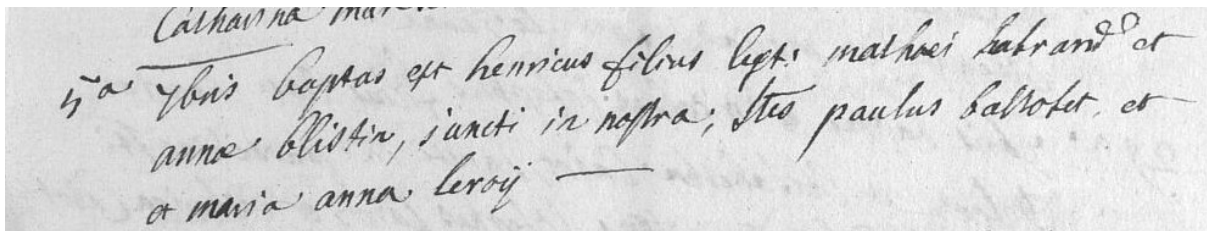 Catharina mar
5a 7bris baptas est henricus filius legt: mathaei habrand et
annae blistin, juncti in nostra; Stes paulus ballotet et
et maria anna leroij